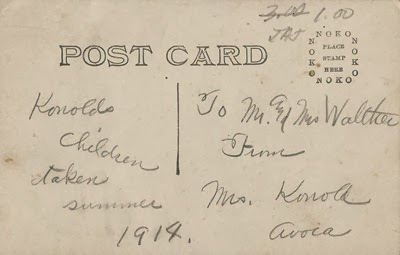 3.00 1.00
POST CARD
NOKO
NOKO
PLACE
STAMP
HERE
NOKO
NOKO
Konolds
Children
taken
summer
1914.
To Mr. & Mrs Walther
From
Mrs. Konold
Avoca